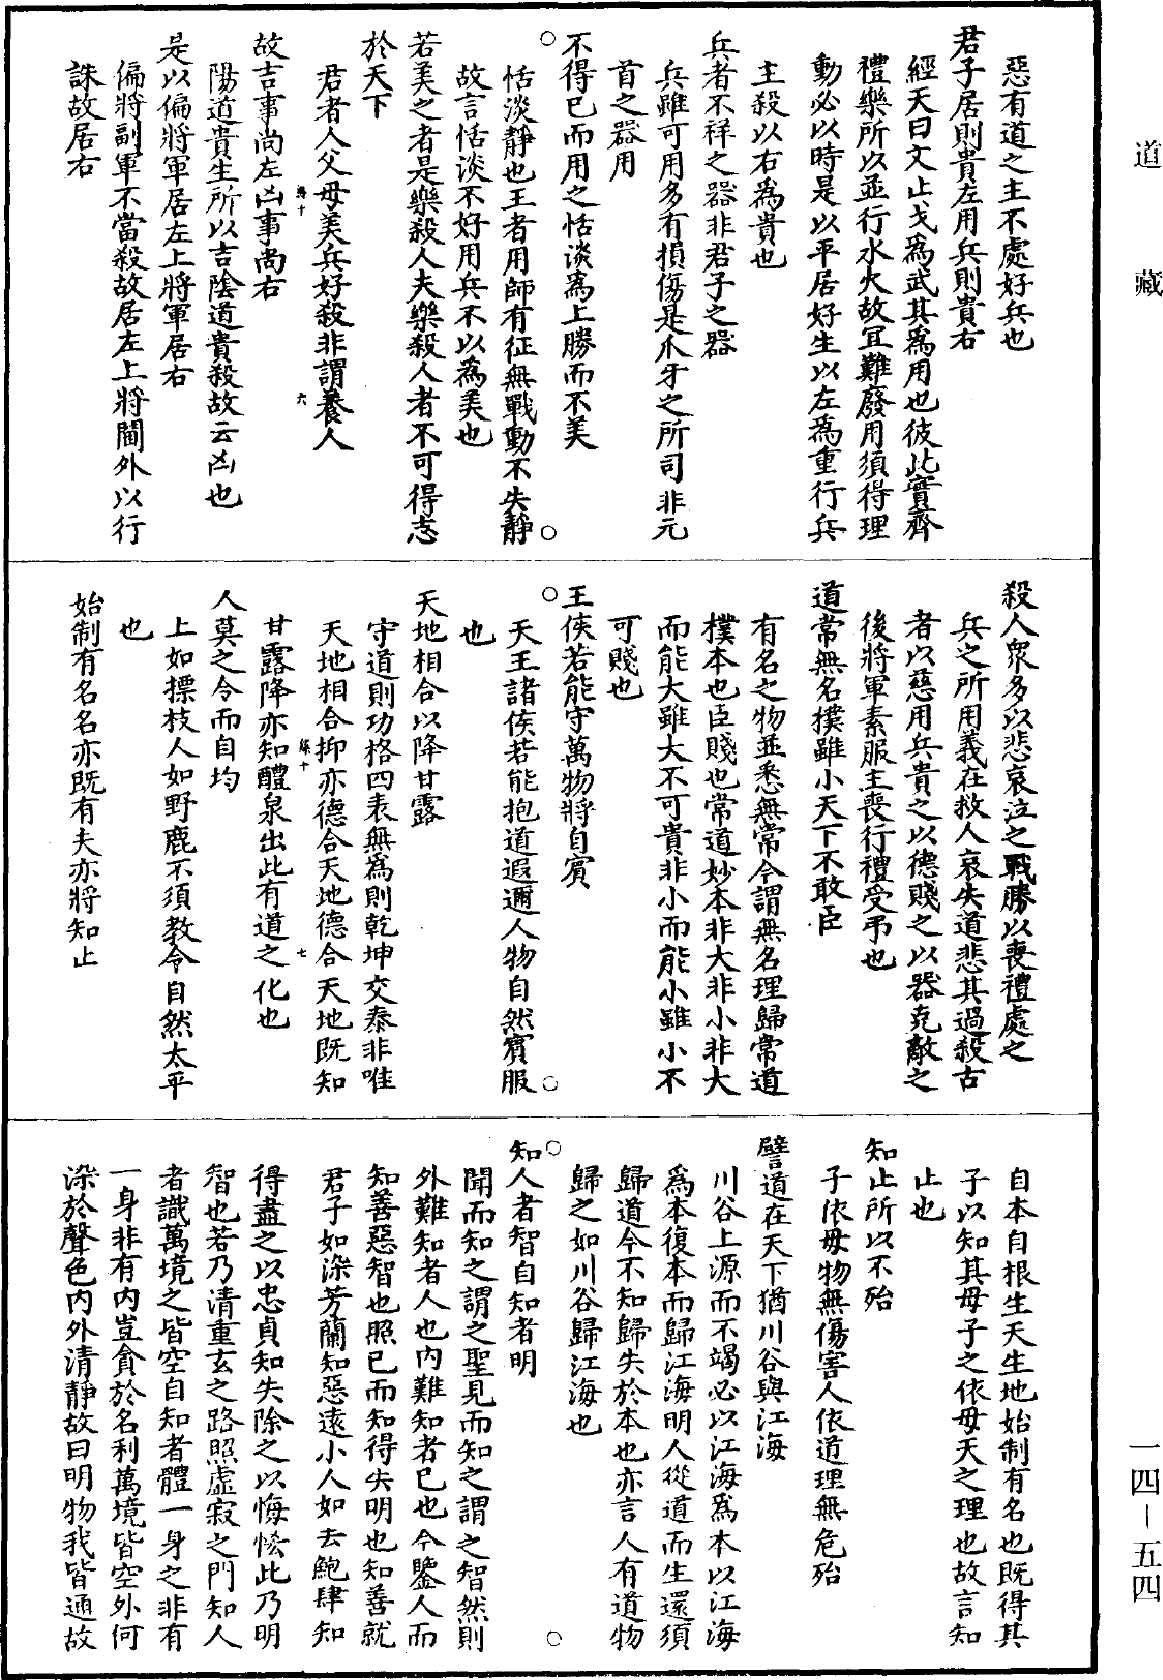 道藏
惡有道之主不處好兵也
君子居則貴左用兵則貴右
經天曰文止戈爲武其爲用也彼此實齊
禮樂所以並行水火故宜難廢用須得理
動必以時是以平居好生以左爲重行兵
主殺以右爲貴也
兵者不祥之器非君子之器
兵雖可用多有損傷是爪牙之所司非元
首之器用
不得已而用之恬淡爲上勝而不美
恬淡靜也王者用師有征無戰動不失靜
故言恬淡不好用兵不以爲美也
若美之者是樂殺人夫樂殺人者不可得志
於天下
君者人父母美兵好殺非謂養人
故吉事尚左凶事尚右
陽道貴生所以吉陰道貴殺故云凶也
是以偏將軍居左上將軍居右
偏將副軍不當殺故居左上將閫外以行
誅故居右
殺人衆多以悲哀泣之戰勝以喪禮處之
兵之所用義在救人哀失道悲其過殺古
者以慈用兵貴之以德賤之以器克敵之
後將軍素服主喪行禮受弔也
道常無名撲雖小天下不敢臣
有名之物並悉無常今謂無名理歸常道
撲本也臣賤也常道妙本非大非小非大
而能大雖大不可貴非小而能小雖小不
可賤也
王侯若能守萬物將自賓
天王諸侯若能抱道遐邇人物自然賓服
也
天地相合以降甘露
守道則功格四表無爲則乾坤交泰非唯
天地相合抑亦德合天地德合天地既知
甘露降亦知醴泉出此有道之化也
人莫之令而自均
上如摽枝人如野鹿不須教令自然太平
也
始制有名名亦既有夫亦將知止
自本自根生天生地始制有名也既得其
子以知其母子之依母天之理也故言知
止也
知止所以不殆
子依母物無傷害人依道理無危殆
譬道在天下猶川谷與江海
川谷上源而不竭必以江海爲本以江海
爲本復本而歸江海明人從道而生還須
歸道今不知歸失於本也亦言人有道物
歸之如川谷歸江海也
知人者智自知者明
聞而知之謂之聖見而知之謂之智然則
外難知者人也内難知者已也今鑒人而
知善惡智也照已而知得失明也知善就
君子如染芳蘭知惡遠小人如去鮑肆知
得盡之以忠貞知失除之以悔恡此乃明
智也若乃清重玄之路照虛寂之門知人
者識萬境之皆空自知者體一身之非有
一身非有内豈貪於名利萬境皆空外何
染於聲色内外清靜故曰明物我皆通故
一四—五四